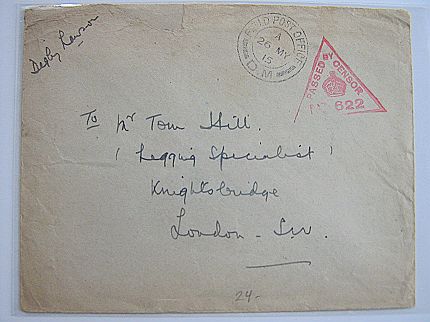 Digby Lawson
FIELD POST OFFICE
A
26 MY
15
D.M
PASSED BY CENSOR
No. 622
To Mr Tom Hill.
( Legging Specialist )
Knightsbridge
London - S.W.
24-